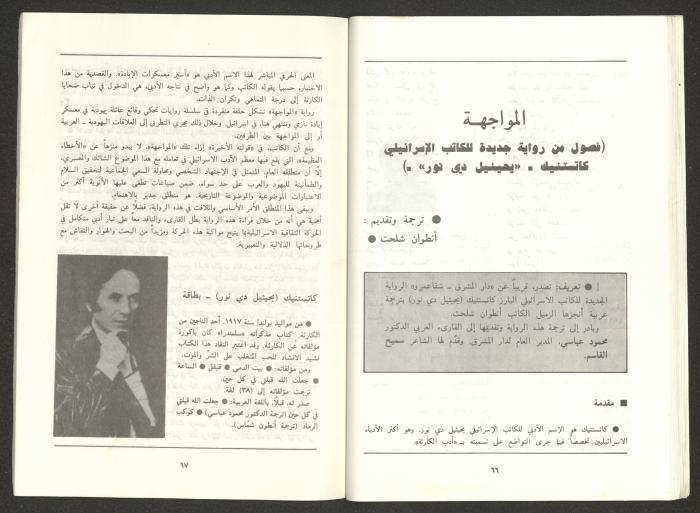 المواجهة
(فصول من رواية جديدة للكاتب الإسرائيلي
كاتستنيك ـ «يحيئيل دي نور» ـ)
● ترجمة وتقديم :
أنطوان شلحت ●
| ● تعريف: تصدر، قريباً عن «دار المشرق ـ شفاعمرو» الرواية
الجديدة للكاتب الاسرائيلي البارز كاتستنيك (يحيئيل دي نور) بترجمة
عربية أنجزها الزميل الكاتب أنطوان شلحت.
وبادر إلى ترجمة هذه الرواية وتقديمها إلى القارىء العربي الدكتور
محمود عباسي، المدير العام لدار المشرق. وقدّم لها الشاعر سميح
القاسم.
■ مقدمة
● كاتستنيك هو الإسم الأدبي للكاتب الإسرائيلي يحيئيل دي نور. وهو أكثر الأدباء
الاسرائيليين تخصصاً فيما جرى التواضع على تسميته بـ «أدب الكارثة».
٦٦
المعنى الحرفي المباشر لهذا الاسم الأدبي هو «أسير معسكرات الإبادة». والقصدية من هذا
الاختيار، حسبما يقوله الكاتب وكما هو واضح في نتاجه الأدبي، هي الدخول في ثياب ضحايا
الكارثة إلى درجة التماهي ونكران الذات.
رواية «المواجهة» تشكل حلقة منفردة في سلسلة روايات تحكي وقائع عائلة يهودية في معسكر
إبادة نازي وتنتهي هنا، في اسرائيل. وخلال ذلك يجري التطرق إلى العلاقات اليهودية ـ العربية
أو إلى المواجهة بين الطرفين.
ومع أن الكاتب، في «قولته الأخيرة» إزاء تلك «المواجهة»، لا يبدو منزّهاً عن «الأخطاء
العظيمة»، التي يقع فيها معظم الأدب الاسرائيلي في تعامله مع هذا الموضوع الشائك والمصيري،
إلّا أن منطلقه العام، المتمثل في الإجتهاد الشخصي ومحاولة السعي الجماعية لتحقيق السلام
والطمأنينة لليهود والعرب على حد سواء، ضمن صياغات تطغى عليها الأنوية أكثر من
الاعتبارات الموضوعية والموضوعة التاريخية، هو منطلق جدير بالاهتمام.
ويبقى هذا المنطلق الأمر الأساسي واللافت في هذه الرواية، فضلاً عن حقيقة أخرى لا تقل
أهمية هي أنه من خلال قراءة هذه الرواية يطل القارىء والناقد معاً على تيار أدبي متكامل في
الحركة الثقافية الاسرائيلية بما يتيح مواكبة هذه الحركة ومزيداً من البحث والحوار والنقاش مع
طروحاتها الدلالية والتعبيرية.
كاتستنيك (يحيئيل دي نور) ـ بطاقة
● من مواليد بولندا سنة ١٩١٧. أحد الناجين من
الكارثة. كتاب مذكراته «سلمندرا» كان باكورة
مؤلفاته عن الكارثة. وقد اعتبر النقاد هذا الكتاب
نشيد الانشاد للحب المتغلب على الشرّ والموت.
ومن مؤلفاته: ● بيت الدمى ● فيفل ● الساعة
● جعلت الله قبلتي في كل حين.
ترجمت مؤلفاته إلى (٣٨) لغة.
صدر له، قبلاً، باللغة العربية: ● جعلت الله قبلتي
في كل حين (ترجمة الدكتور محمود عباسي) ● كوكب
الرماد (ترجمة أنطون شمّاس).
٦٧